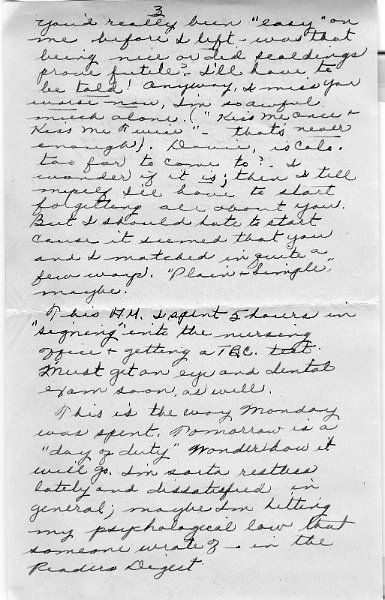 3
You'd really been "easy" on
me before I left - was that
being nice or did scoldings
prove futile? - I'll have to
be told! Anyway, I miss you
worse now, I'm so awful
much alone. ("Kiss Me Once &
Kiss Me Twice" - that's never
enough). Dowie, is Calo.
too far to come to? - I
wonder if it is; then I tell
myself I'll have to start
forgetting all about you.
But I should hate to start
cause it seemed that you
and I matched in quite a
few ways. "Plain & Simple,"
maybe.
This A.M. I spent 5 hours in
"signing" into the nursing
office & getting a TBC. test.
Must get an eye and dental
exam soon, as will.
This is the way Monday
was spent. Tomorrow is a
"day of duty" Wonder how it
will go. I'm sorta restless
lately and dissatisfied in
general; maybe I'm hitting
my psychological law that
someone wrote of - in the
Readers Digest